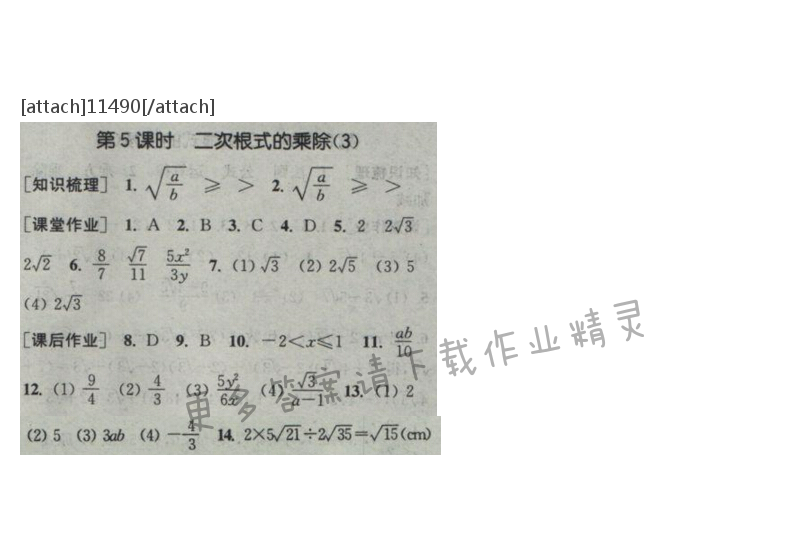 [attach]11490[/attach]
第5课时 二次根式的乘除(3)
[知识梳理] 1. √(a/b) ≥ > 2. √(a/b) ≥ >
[课堂作业] 1. A 2. B 3. C 4. D 5. 2 2√3
2√2 6. 8/7 √7/11 5x²/3y 7. (1) √3 (2) 2√5 (3) 5
(4) 2√3
[课后作业] 8. D 9. B 10. －2<x≤1 11. ab/10
12. (1) 9/4 (2) 4/3 (3) 5y²/6x (4) √3/(a－1) 13. (1) 2
(2) 5 (3) 3ab (4) －4/3 14. 2×5√21÷2√35=√15(cm)
更多答案请下载作业精灵